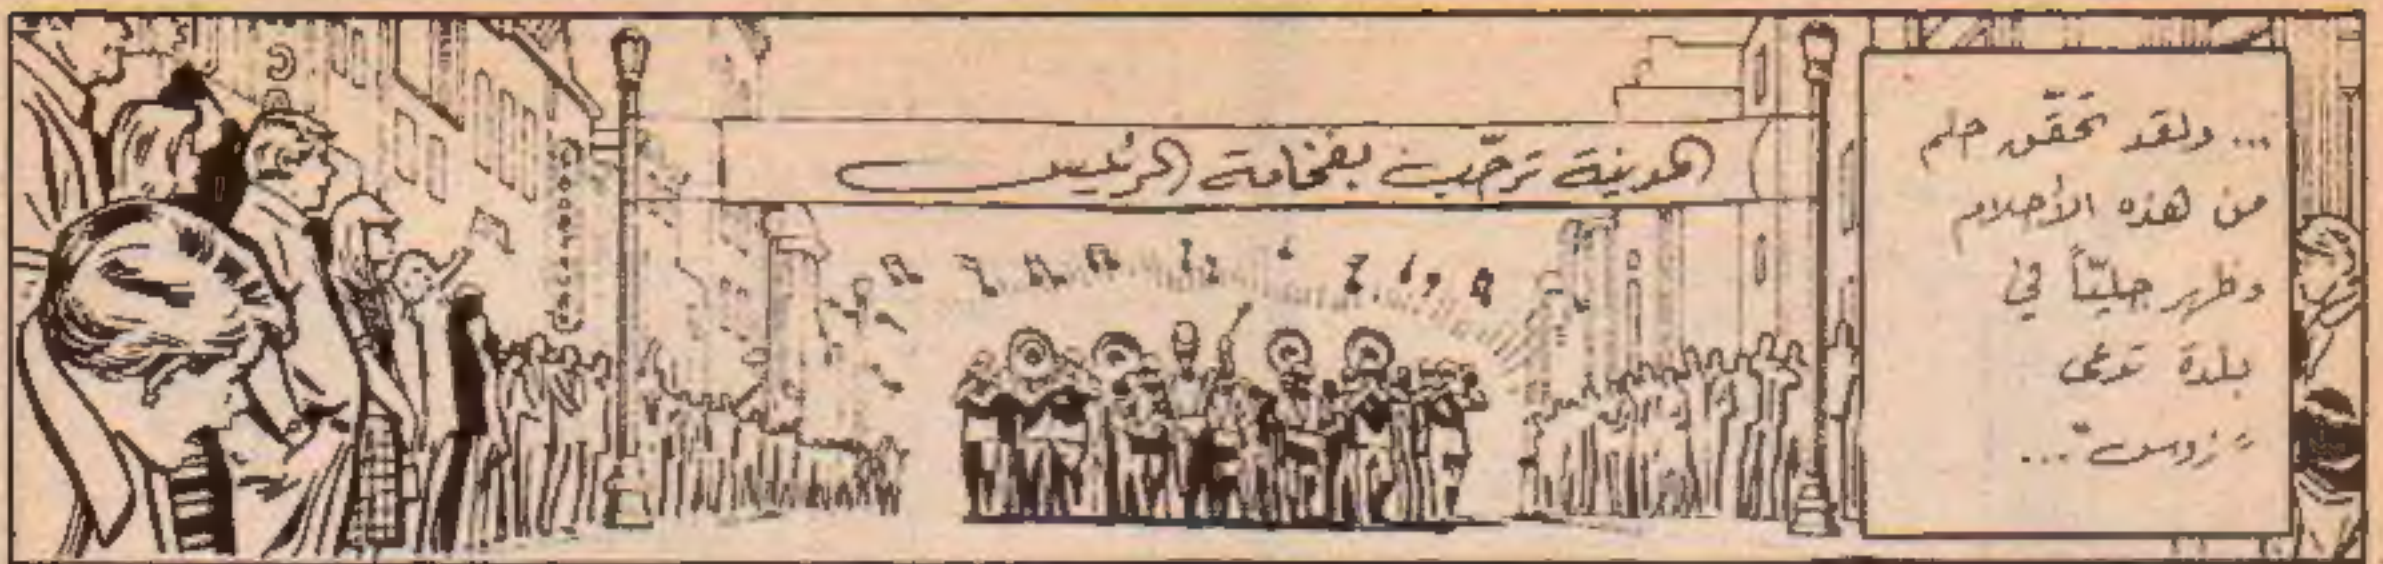 ... ولقد تحقّق حلم
من هذه الأحلام
وظهر جليّاً في
بلدة تدعى
"زوس"...
المدينة ترحّب بفخامة الرئيس